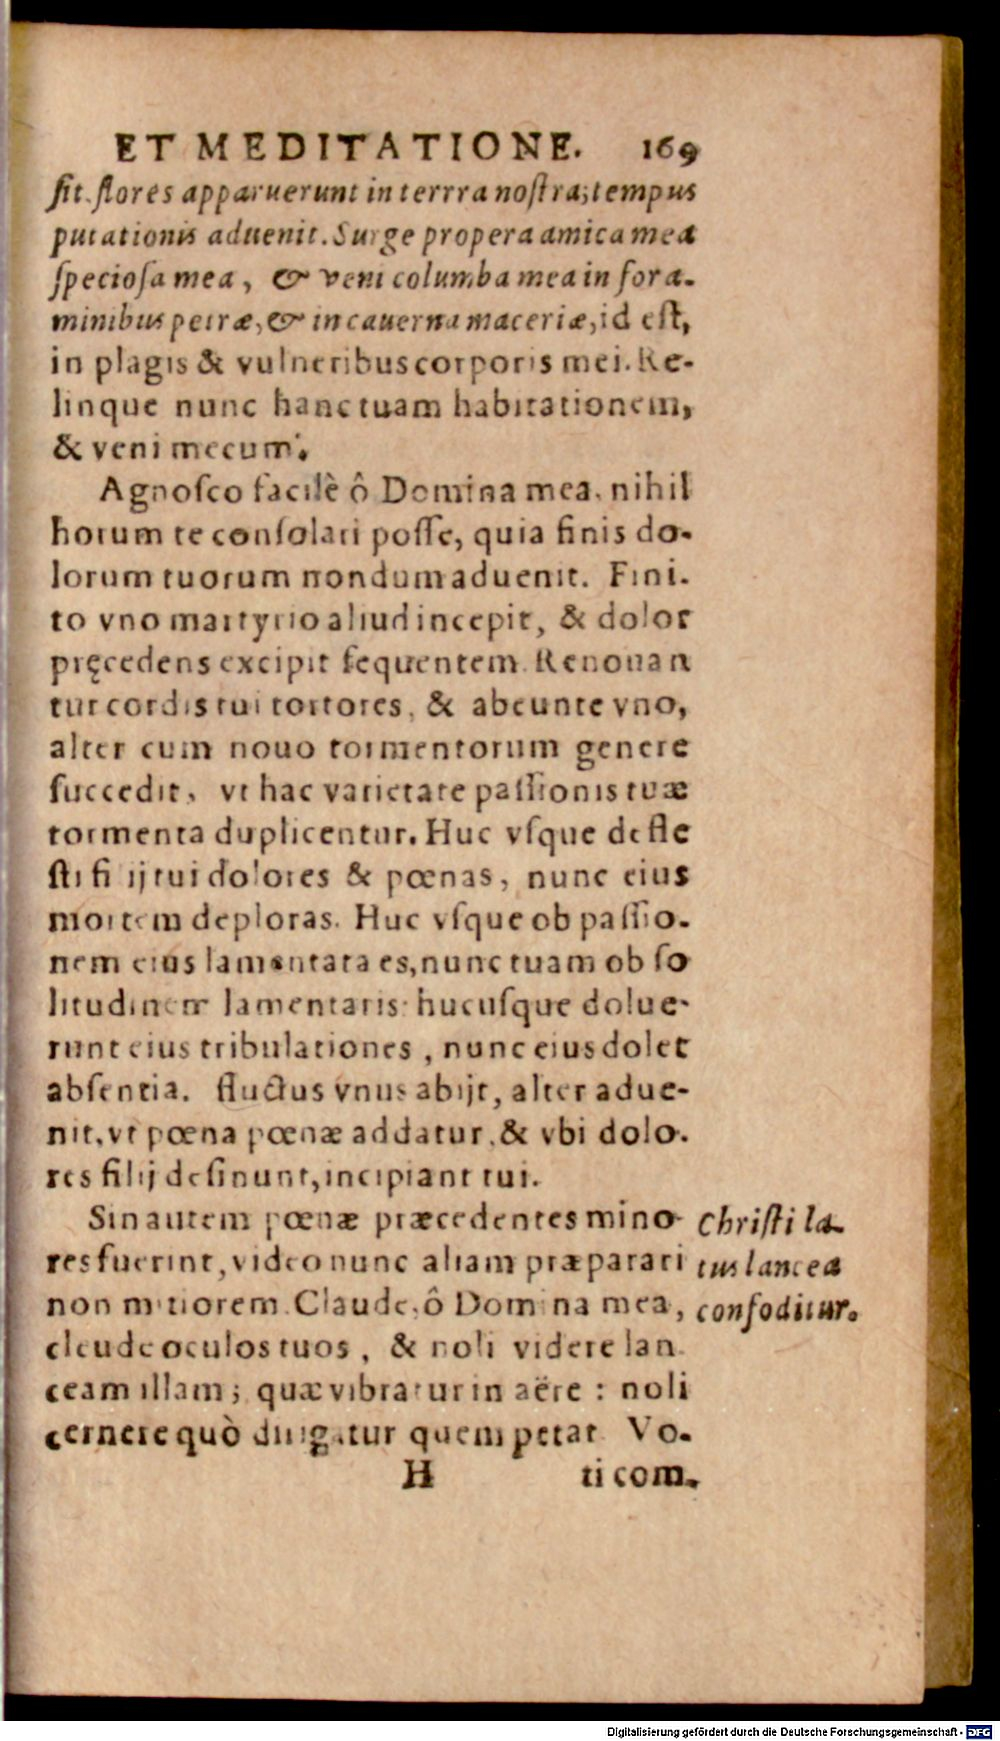 ET MEDITATIONE. 169
ſit. flores apparuerunt in terrra noſtra; tempus
putationis aduenit. Surge propera amica mea
ſpecioſa mea, & veni columba mea in fora-
minibus petræ, & in cauerna maceriæ, id eſt,
in plagis & vulneribus corporis mei. Re-
linque nunc hanc tuam habitationem,
& veni mecum.
Agnoſco facilè ô Domina mea, nihil
horum te conſolari poſſe, quia finis do-
lorum tuorum nondum aduenit. Fini-
to vno martyrio aliud incepit, & dolor
pręcedens excipit ſequentem. Renouan
tur cordis tui tortores, & abeunte vno,
alter cum nouo tormentorum genere
ſuccedit, vt hac varietate paſſionis tuæ
tormenta duplicentur. Huc vſque defle
ſti fiij tui dolores & pœnas, nunc eius
mortem deploras. Huc vſque ob paſſio-
nem eius lamentata es, nunc tuam ob ſo
litudinem lamentaris: hucuſque dolue-
runt eius tribulationes, nunc eius dolet
abſentia. fluctus vnus abijt, alter adue-
nit, vt pœna pœnæ addatur, & vbi dolo-
res filij deſinunt, incipiant tui.
Sin autem pœnæ præcedentes mino-
res fuerint, video nunc aliam præparari
non mitiorem. Claude, ô Domina mea,
cleude oculos tuos, & noli videre lan
ceam illam; quæ vibratur in aëre: noli
cernere quò dirigatur quem petat. Vo-
H ti com-
Chriſti la-
tus lancea
confoditur.
Digitalisierung gefördert durch die Deutsche Forschungsgemeinschaft - DFG